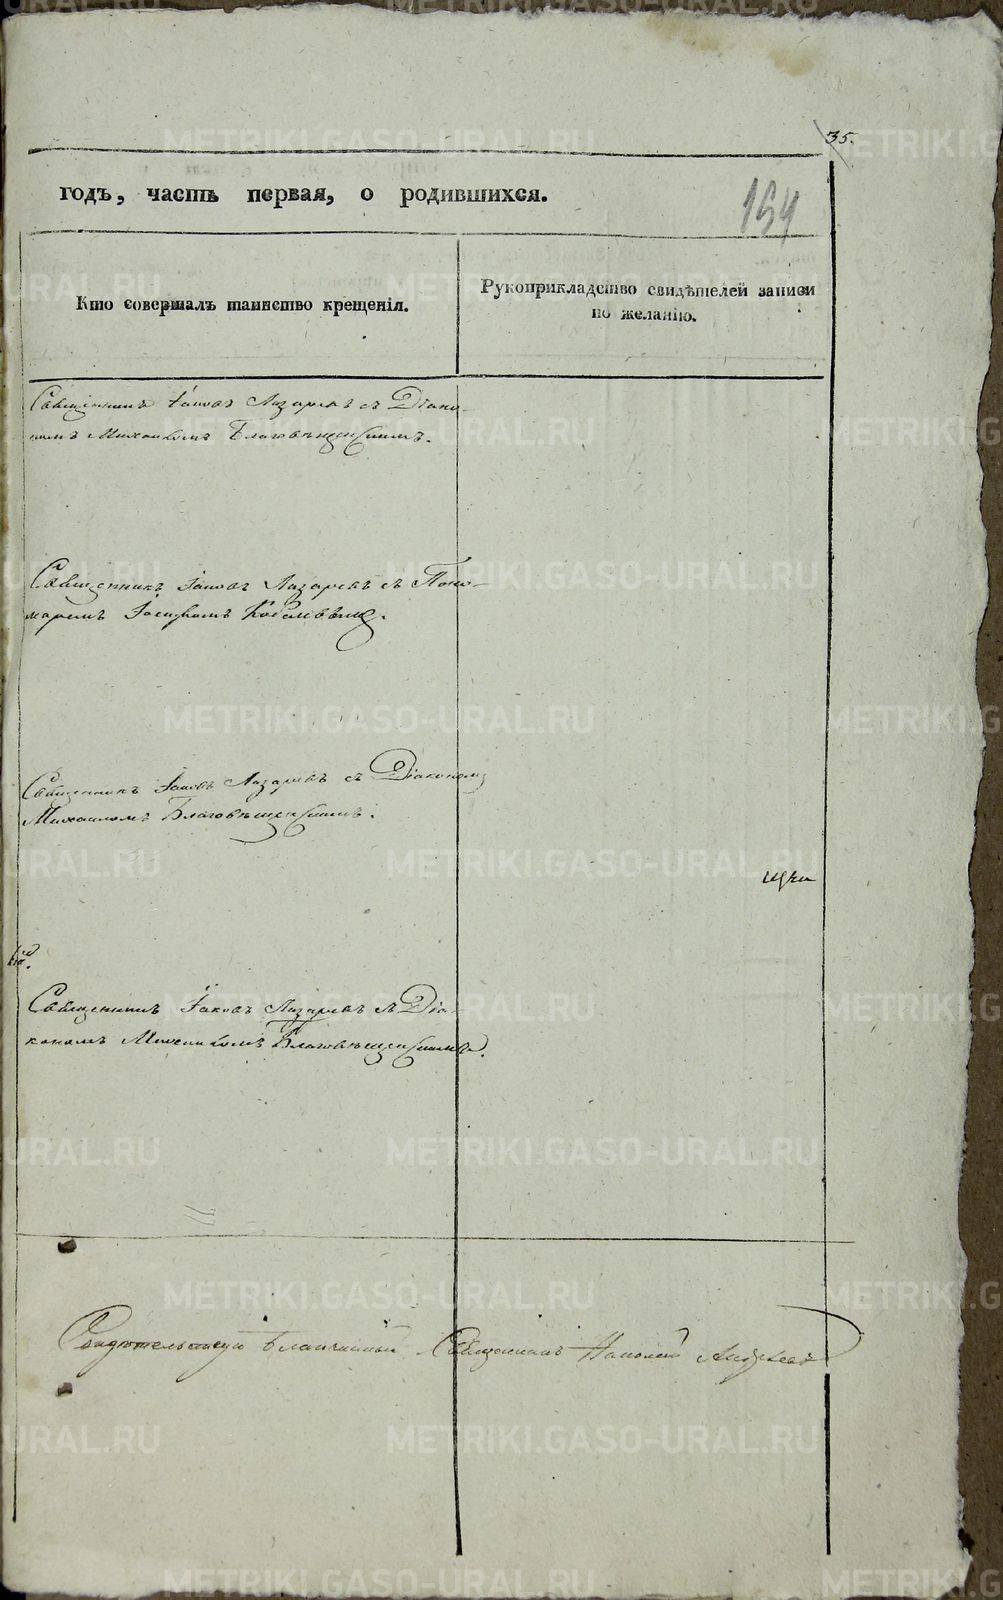 35.
годъ, часть первая, о родившихся.
154
Кто совершалъ таинство крещенія.
Рукоприкладство свидѣтелей записи
по желанію.
Священникъ Іаковъ Лазаревъ съ Діако-
номъ Михаиломъ Благовѣщенскимъ.
Священникъ Іаковъ Лазаревъ съ Поно-
маремъ
Священникъ Іаковъ Лазаревъ съ Діакономъ
Михаиломъ Благовѣщенскимъ.
Священникъ Іаковъ Лазаревъ съ Діа-
кономъ Михаиломъ Благовѣщенскимъ.
Благочинный Священникъ Андреевъ
METRIKI.GASO-URAL.RU